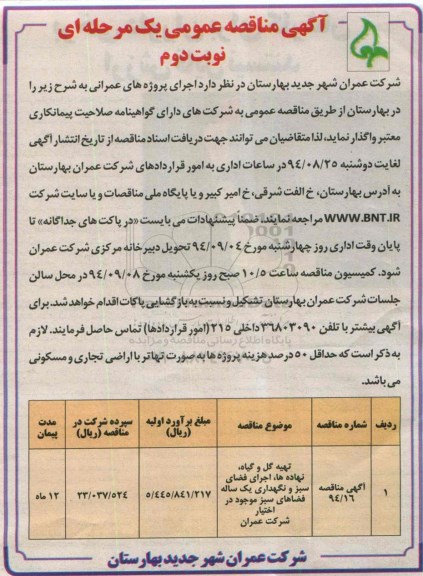 آگهی مناقصه عمومی یک مرحله ای
نوبت دوم
شرکت عمران شهر جدید بهارستان در نظر دارد اجرای پروژه های عمرانی به شرح زیر را
در بهارستان از طریق مناقصه عمومی به شرکت های دارای گواهینامه صلاحیت پیمانکاری
معتبر واگذار نماید، لذا متقاضیان می توانند جهت دریافت اسناد مناقصه از تاریخ انتشار آگهی
لغایت دوشنبه ۹۴/۰۸/۲۵ در ساعات اداری به امور قراردادهای شرکت عمران بهارستان
به آدرس بهارستان، خ الفت شرقی، خ امیر کبیر و یا پایگاه ملی مناقصات و یا سایت شرکت
WWW.BNT.IR مراجعه نمایند. ضمناً پیشنهادات می بایست «در پاکت های جداگانه» تا
پایان وقت اداری روز چهارشنبه مورخ ۹۴/۰۹/۰۴ تحویل دبیرخانه مرکزی شرکت عمران
شود. کمیسیون مناقصه ساعت ۱۰/۵ صبح روز یکشنبه مورخ ۹۴/۰۹/۰۸ در محل سالن
جلسات شرکت عمران بهارستان تشکیل و نسبت به بازگشایی پاکات اقدام خواهد شد. برای
آگهی بیشتر با تلفن ۳۶۸۰۳۰۹۰ داخلی ۲۱۵ (امور قراردادها) تماس حاصل فرمایند. لازم
به ذکر است که حداقل ۵۰ درصد هزینه پروژه ها به صورت تهاتر با اراضی تجاری و مسکونی
می باشد.
ردیف شماره مناقصه موضوع مناقصه مبلغ برآورد اولیه (ریال) سپرده شرکت در مناقصه (ریال) مدت پیمان
۱ آگهی مناقصه ۹۴/۱۶ تهیه گل و گیاه، نهاده ها، اجرای فضای سبز و نگهداری یک ساله فضاهای سبز موجود در اختیار شرکت عمران ۵/۴۴۵/۸۴۱/۲۱۷ ۲۳/۰۳۷/۵۲۴ ۱۲ ماه
شرکت عمران شهر جدید بهارستان